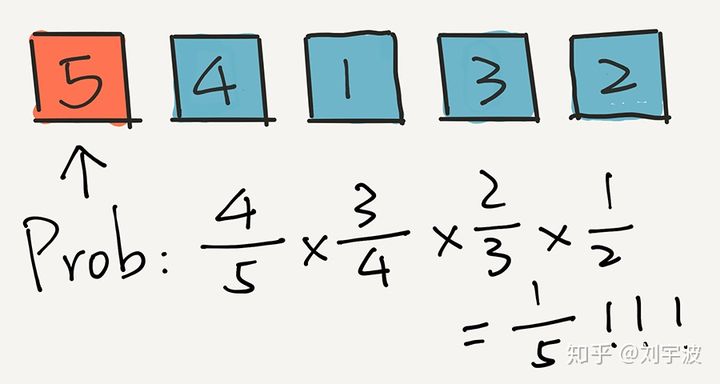 5 4 1 3 2
↑
Prob: 4/5 × 3/4 × 2/3 × 1/2
= 1/5 !!!
知乎 @刘宇波